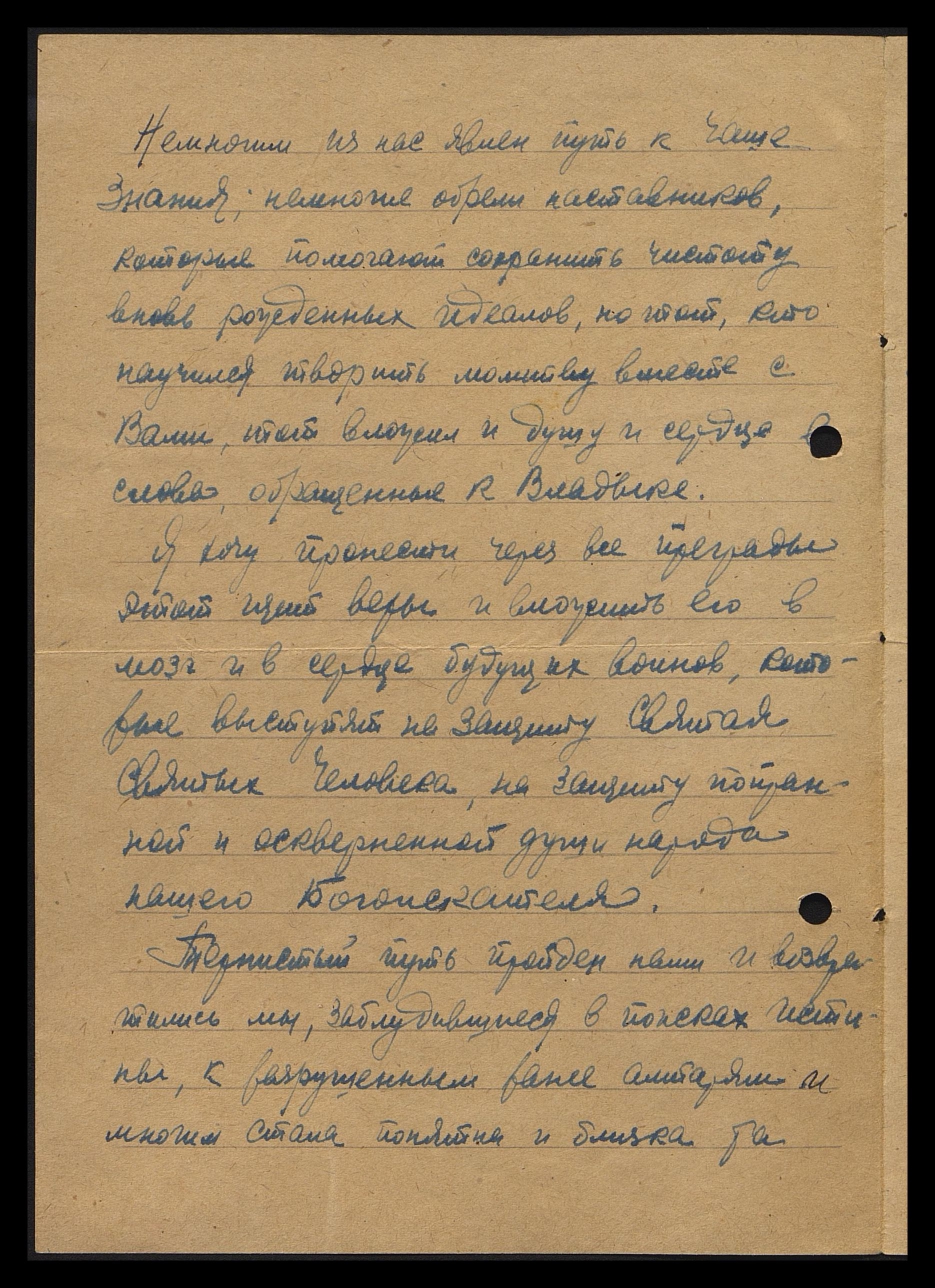 Немногим из нас явлен путь к Чаше
Знания; немногие обрели наставников,
которые помогают сохранить чистоту
вновь рожденных идеалов, но тот, кто
научился творить молитву вместе с
Вами, тот вложил и душу и сердце в
слова, обращенные к Владыке.
Я хочу пронести через все преграды
этот щит веры и вложить его в
мозг и в сердце будущих воинов, кото-
рые выступят на защиту Святая
Святых Человека, на защиту попран-
ной и оскверненной души народа
нашего Богоискателя.
Тернистый путь пройден нами и возвра-
тились мы, заблудившиеся в поисках исти-
ны, к разрушенным ранее алтарям и
многим стала понятна и близка та